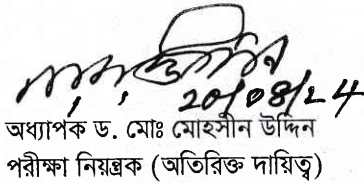 20/08/24
অধ্যাপক ড. মোঃ মোহসীন উদ্দিন
পরীক্ষা নিয়ন্ত্রক (অতিরিক্ত দায়িত্ব)